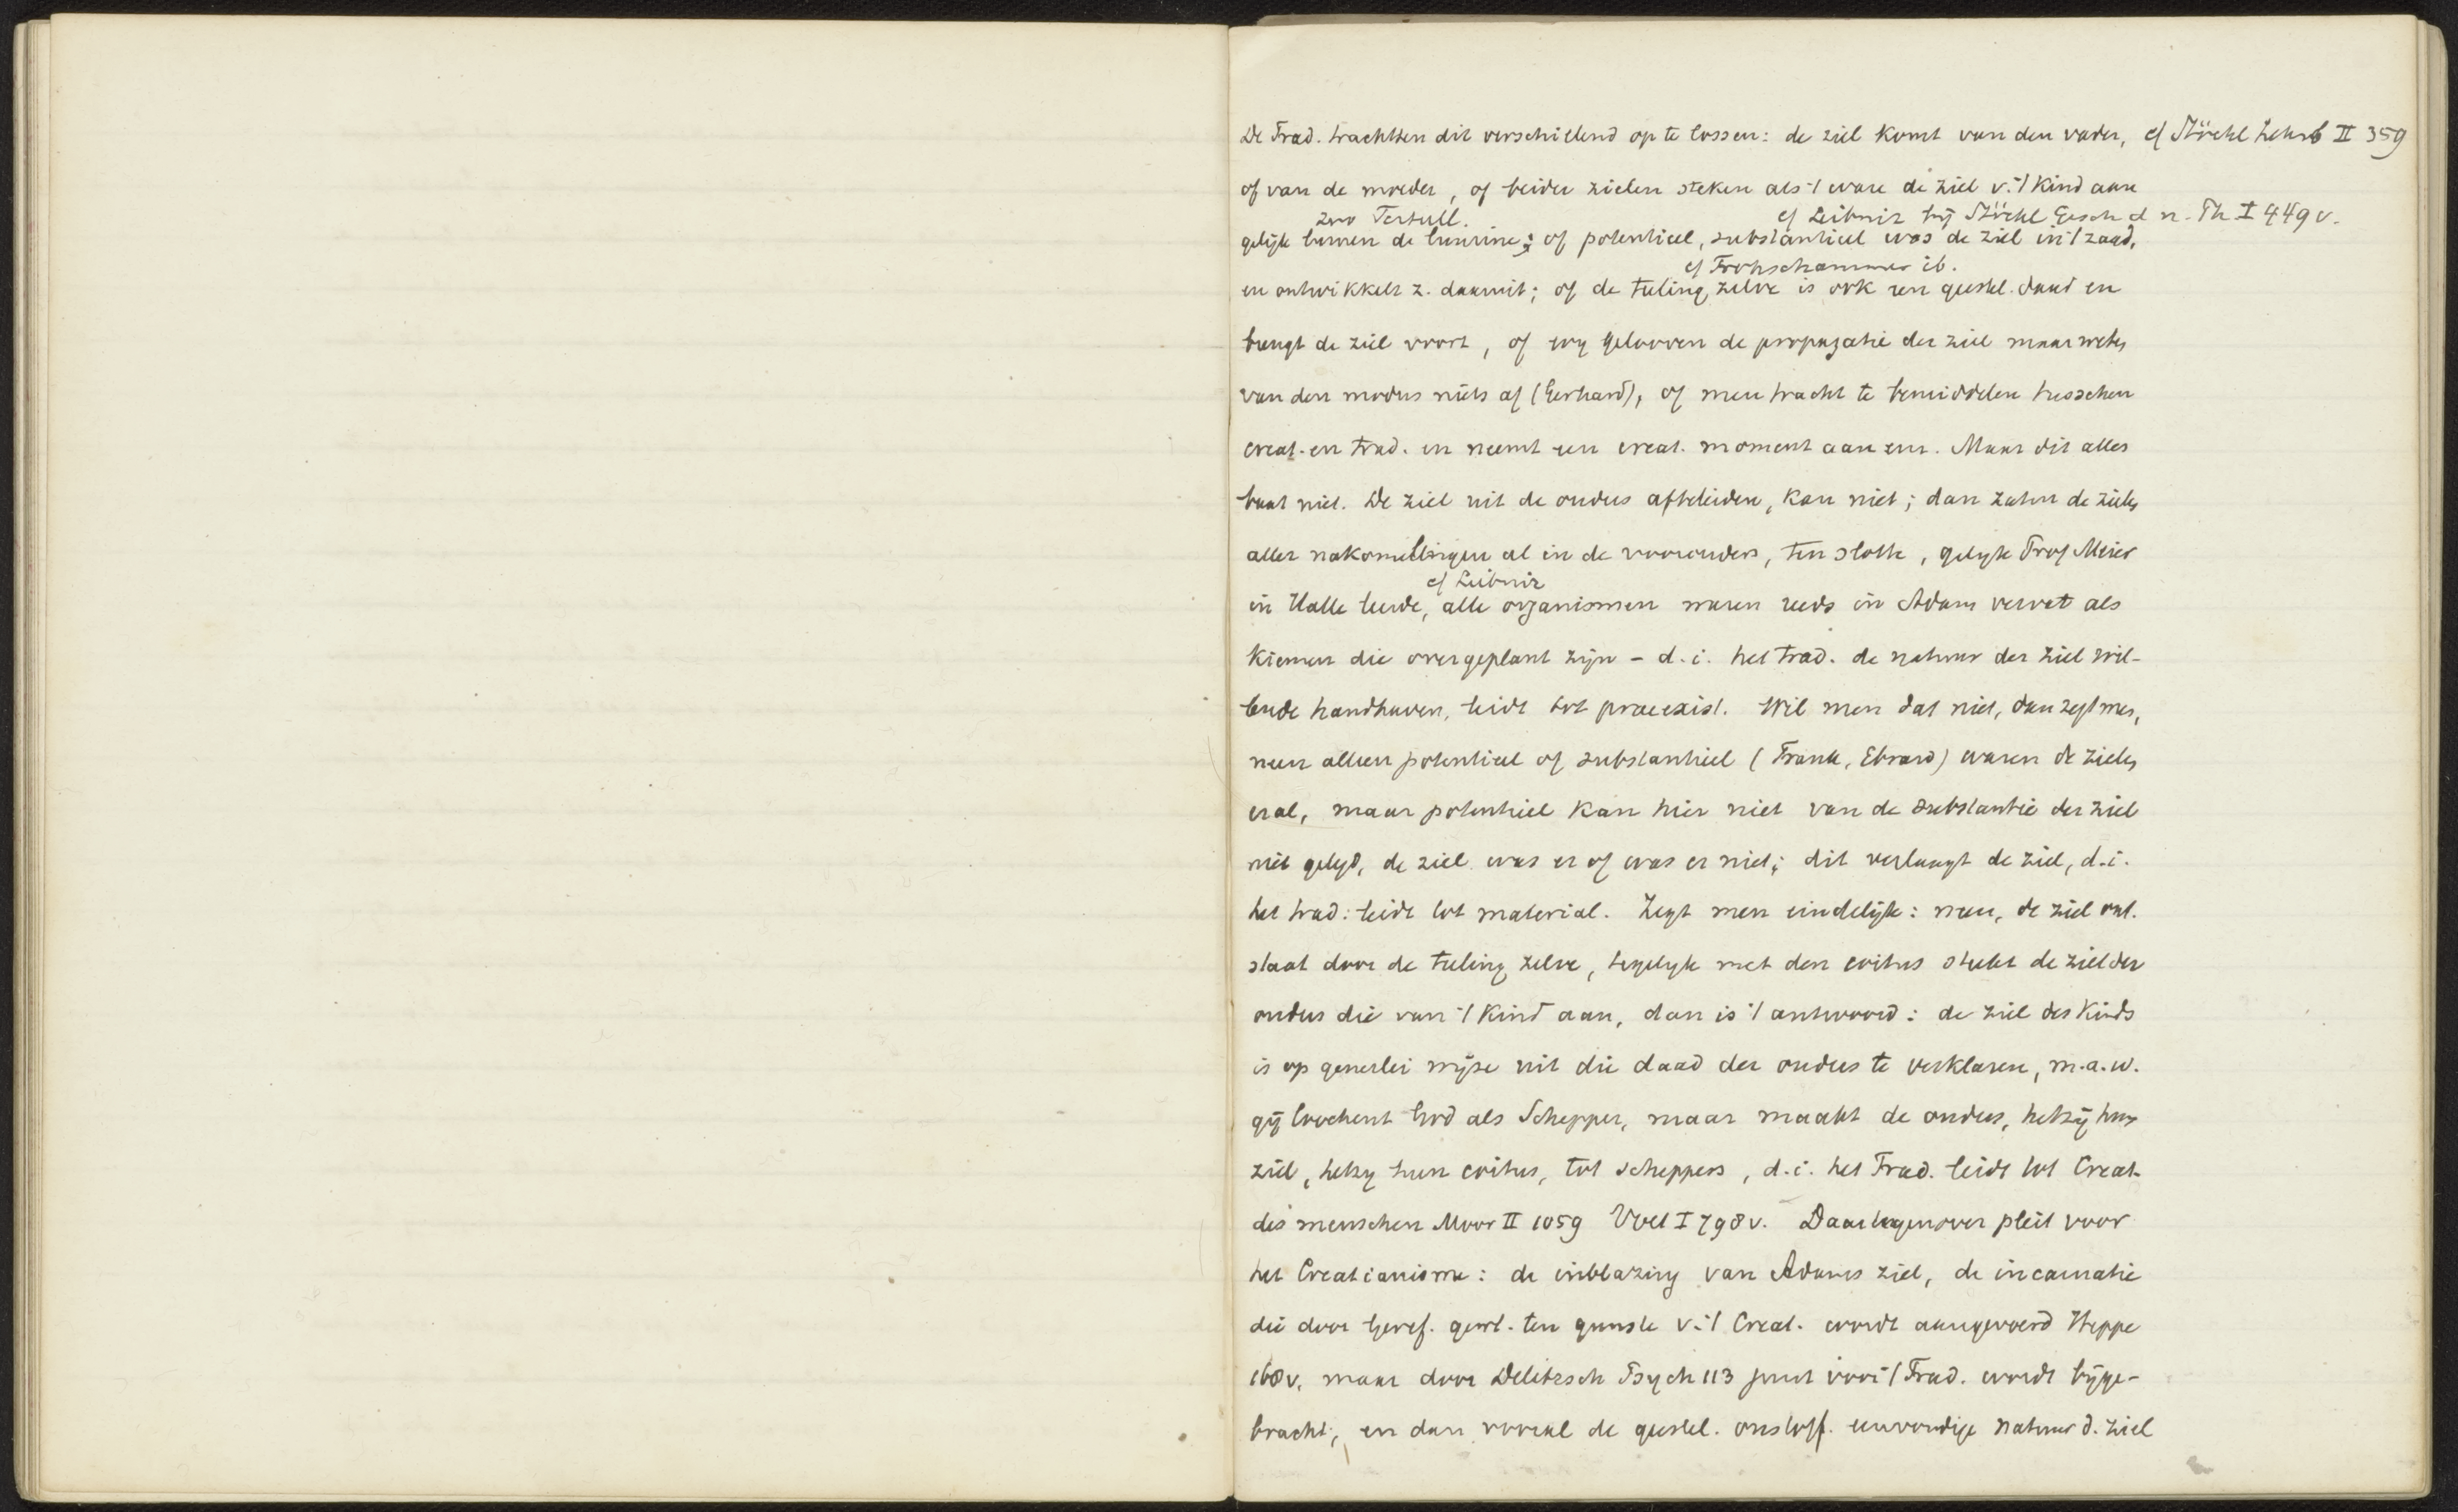 De Trad. trachtten dit verschillend op te lossen: de ziel komt van den vader, cf Stöckl Lehrb II 359
of van de moeder, of beider zielen steken als 't ware de ziel v. 't kind aan
zoo Tertull. cf Leibniz bij Stöckl Gesch d n. Ph I 449 v.
gelijk de ; of potentieel, substantieel was de ziel in 't zaad,
cf Frohschammer ib.
en ontwikkelt z. daaruit; of de teling zelve is ook een geestel. daad en
brengt de ziel voort, of wij gelooven de propagatie der ziel maar weten
van den modus niets af (Gerhard), of men tracht te bemiddelen tusschen
creat. en trad. en neemt een creat. moment aan enz. Maar dit alles
baat niet. De ziel uit de ouders afteleiden, kan niet; dan zaten de zielen
aller nakomelingen al in de voorouders, ten slotte, gelijk Prof Meier
cf Leibniz
in Halle leerde, alle organismen waren reeds in Adam vervat als
kiemen die overgeplant zijn - d.i. het trad. de natuur der ziel wil-
lende handhaven, leidt tot praeexist. Wil men dat niet, dan zegt men,
neen alleen potentieel of substantieel (Frank, Ebrard) waren de zielen
er al, maar potentieel kan hier niet van de substantie der ziel
niet gelegd, de ziel was er of was er niet; dit verlaagt de ziel, d.i.
het trad: leidt tot material. Zegt men eindelijk: neen, de ziel ont-
staat door de teling zelve, tegelijk met den coitus steekt de ziel der
ouders die van 't kind aan, dan is 't antwoord: de ziel des kinds
is op generlei wijze uit die daad der ouders te verklaren, m.a.w.
gij loochent God als Schepper, maar maakt de ouders, hetzij hun
ziel, hetzij hun coitus, tot scheppers, d.i. het Trad. leidt tot Creat.
des menschen Moor II 1059 Voet I 798 v. Daartegenover pleit voor
het Creatianisme: de inblazing van Adams ziel, de incarnatie
die door Geref. gewl. ten gunste v. 't Creat. wordt aangevoerd Heppe
168 v. maar door Delitzsch Psych 113 juist voor 't Trad. wordt bijge-
bracht; en dan vooral de geestel. onstoff. eenvoudige natuur d. ziel